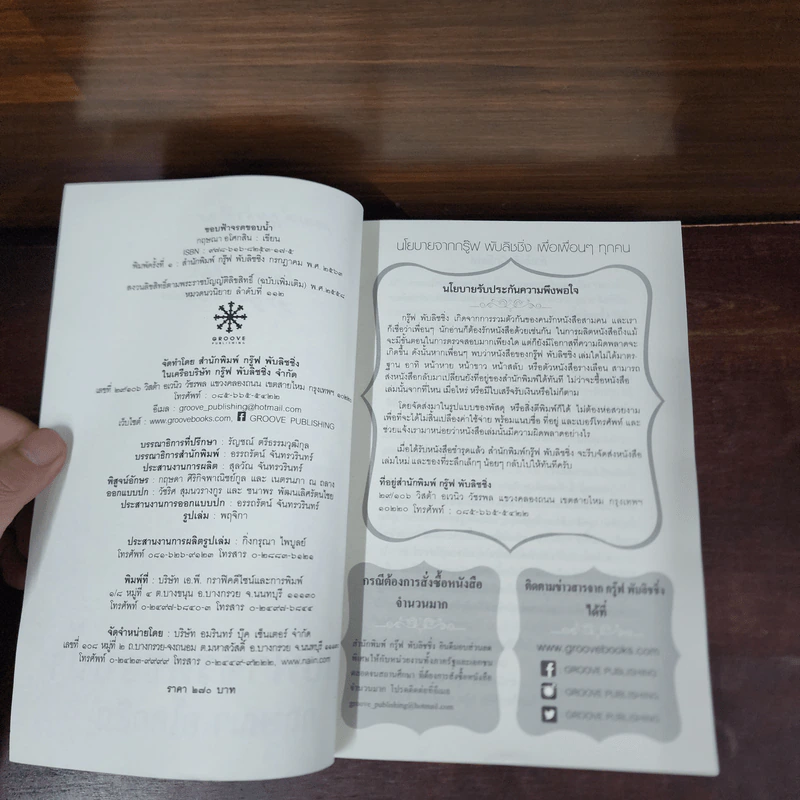 ขอบฟ้าจรดขอบน้ำ
กฤษณา อโศกสิน : เขียน
ISBN : ๙๗๘-๖๑๖-๘๒๕๓-๑๗-๕
พิมพ์ครั้งที่ ๑ : สำนักพิมพ์ กรู๊ฟ พับลิชชิ่ง กรกฎาคม พ.ศ. ๒๕๖๓
สงวนลิขสิทธิ์ตามพระราชบัญญัติลิขสิทธิ์ (ฉบับเพิ่มเติม) พ.ศ. ๒๕๕๘
หมวดนวนิยาย ลำดับที่ ๑๑๒
GROOVE
PUBLISHING
จัดทำโดย สำนักพิมพ์ กรู๊ฟ พับลิชชิ่ง
ในเครือบริษัท กรู๊ฟ พับลิชชิ่ง จำกัด
เลขที่ ๒๙/๑๐๖ วิสต้า อเวนิว วัชรพล แขวงคลองถนน เขตสายไหม กรุงเทพฯ ๑๐๒๒๐
โทรศัพท์ : ๐๘๕-๖๖๕-๕๔๒๒
อีเมล : groove_publishing@hotmail.com
เว็บไซต์ : www.groovebooks.com, GROOVE PUBLISHING
บรรณาธิการที่ปรึกษา : รัญชน์ ตรีธรรมวุฒิกุล
บรรณาธิการสำนักพิมพ์ : อรรถรัตน์ จันทรวรินทร์
ประสานงานการผลิต : สุลวัณ จันทรวรินทร์
พิสูจน์อักษร : กฤษดา ศิริกิจพาณิชย์กูล และ เนตรนภา ณ ถลาง
ออกแบบปก : วัชริศ สุมนวรางกูร และ ชนาพร พัฒนเลิศรัตนไชย
ประสานงานการออกแบบปก : อรรถรัตน์ จันทรวรินทร์
รูปเล่ม : พฤจิกา
ประสานงานการผลิตรูปเล่ม : กิ่งกรุณา ไพบูลย์
โทรศัพท์ ๐๘๑-๖๒๖-๙๑๒๓ โทรสาร ๐-๒๘๘๓-๖๑๒๑
พิมพ์ที่ : บริษัท เอ.พี. กราฟิคดีไซน์และการพิมพ์
๑/๘ หมู่ที่ ๔ ต.บางขนุน อ.บางกรวย จ.นนทบุรี ๑๑๑๓๐
โทรศัพท์ ๐-๒๔๙๗-๖๘๔๐-๓ โทรสาร ๐-๒๔๙๗-๖๘๔๔
จัดจำหน่ายโดย : บริษัท อมรินทร์ บุ๊ค เซ็นเตอร์ จำกัด
เลขที่ ๑๐๘ หมู่ที่ ๒ ถ.บางกรวย-จงถนอม ต.มหาสวัสดิ์ อ.บางกรวย จ.นนทบุรี ๑๑๑๓๐
โทรศัพท์ ๐-๒๔๒๓-๙๙๙๙ โทรสาร ๐-๒๔๔๙-๙๒๒๒, www.naiin.com
ราคา ๒๗๐ บาท
นโยบายจากกรู๊ฟ พับลิชชิ่ง เพื่อเพื่อนๆ ทุกคน
นโยบายรับประกันความพึงพอใจ
กรู๊ฟ พับลิชชิ่ง เกิดจากการรวมตัวกันของคนรักหนังสือสามคน และเรา
ก็เชื่อว่าเพื่อนๆ นักอ่านก็ต้องรักหนังสือด้วยเช่นกัน ในการผลิตหนังสือถึงแม้
จะมีขั้นตอนในการตรวจสอบมากเพียงใด แต่ก็ยังมีโอกาสที่ความผิดพลาดจะ
เกิดขึ้น ดังนั้นหากเพื่อนๆ พบว่าหนังสือของกรู๊ฟ พับลิชชิ่ง เล่มใดไม่ได้มาตร
ฐาน อาทิ หน้าหาย หน้าขาว หน้าสลับ หรือตัวหนังสือรางเลือน สามารถ
ส่งหนังสือกลับมาเปลี่ยนยังที่อยู่ของสำนักพิมพ์ได้ทันที ไม่ว่าจะซื้อหนังสือ
เล่มนั้นจากที่ไหน เมื่อไหร่ หรือมีใบเสร็จรับเงินหรือไม่ก็ตาม
โดยจัดส่งมาในรูปแบบของพัสดุ หรือสิ่งตีพิมพ์ก็ได้ ไม่ต้องห่อสวยงาม
เพื่อที่จะได้ไม่สิ้นเปลืองค่าใช้จ่าย พร้อมแนบชื่อ ที่อยู่ และเบอร์โทรศัพท์ และ
ช่วยแจ้งเรามาหน่อยว่าหนังสือเล่มนั้นมีความผิดพลาดอย่างไร
เมื่อได้รับหนังสือชำรุดแล้ว สำนักพิมพ์กรู๊ฟ พับลิชชิ่ง จะรีบจัดส่งหนังสือ
เล่มใหม่ และของที่ระลึกเล็กๆ น้อยๆ กลับไปให้ทันทีครับ
ที่อยู่สำนักพิมพ์ กรู๊ฟ พับลิชชิ่ง
๒๙/๑๐๖ วิสต้า อเวนิว วัชรพล แขวงคลองถนน เขตสายไหม กรุงเทพฯ
๑๐๒๒๐ โทรศัพท์ : ๐๘๕-๖๖๕-๕๔๒๒
กรณีต้องการสั่งซื้อหนังสือ
จำนวนมาก
สำนักพิมพ์ กรู๊ฟ พับลิชชิ่ง ยินดีมอบส่วนลด
พิเศษให้กับหน่วยงานทั้งภาครัฐและเอกชน
ตลอดจนสถานศึกษา ที่ต้องการสั่งซื้อหนังสือ
จำนวนมาก โปรดติดต่อที่อีเมล
groove_publishing@hotmail.com
ติดตามข่าวสารจาก กรู๊ฟ พับลิชชิ่ง
ได้ที่
www.groovebooks.com
GROOVE PUBLISHING
GROOVE PUBLISHING
GROOVE PUBLISHING